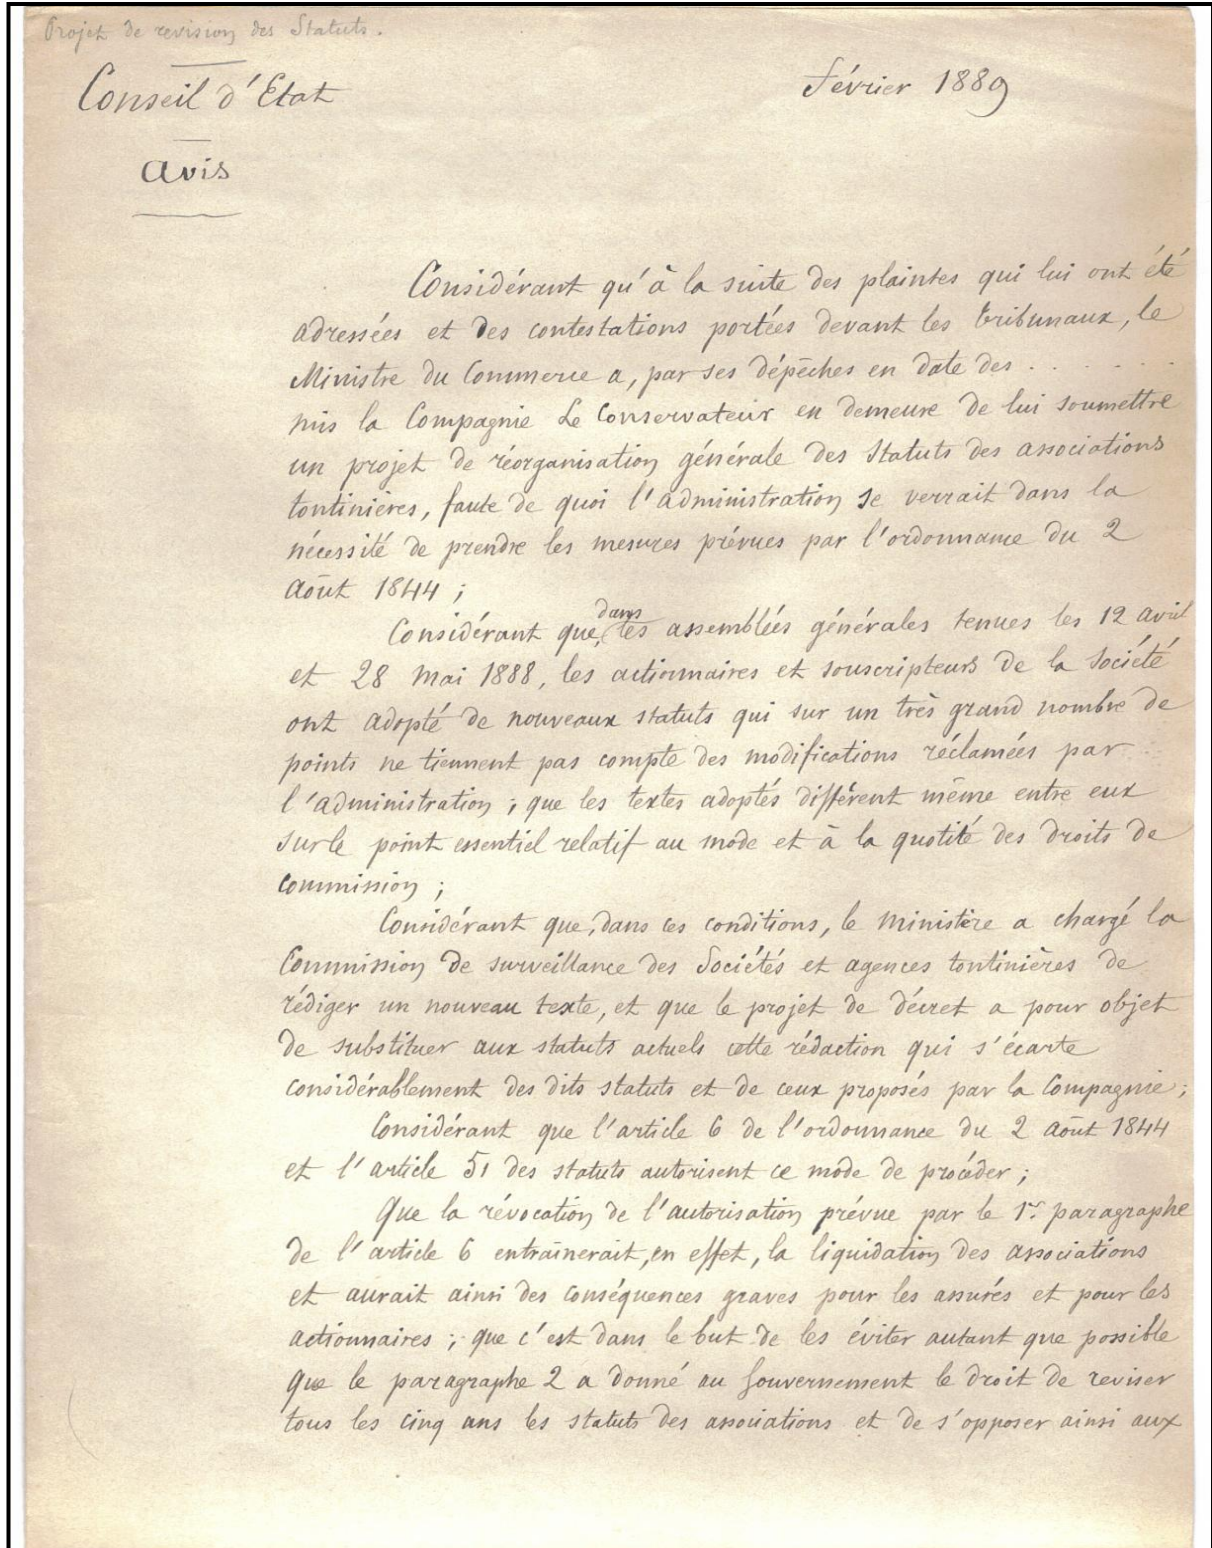 Projet de revision des Statuts.
Conseil d'Etat
Février 1889
Avis
Considérant qu'à la suite des plaintes qui lui ont été
adressées et des contestations portées devant les tribunaux, le
Ministre du Commerce a, par ses dépêches en date des . . . . .
mis la Compagnie Le Conservateur en demeure de lui soumettre
un projet de réorganisation générale des Statuts des associations
tontinières, faute de quoi l'administration se verrait dans la
nécessité de prendre les mesures prévues par l'ordonnance du 2
Août 1844 ;
Considérant que, dans les assemblées générales tenues les 12 avril
et 28 Mai 1888, les actionnaires et souscripteurs de la Société
ont adopté de nouveaux statuts qui sur un très grand nombre de
points ne tiennent pas compte des modifications réclamées par
l'administration ; que les textes adoptés diffèrent même entre eux
sur le point essentiel relatif au mode et à la quotité des droits de
commission ;
Considérant que, dans ces conditions, le ministère a chargé la
Commission de surveillance des Sociétés et agences tontinières de
rédiger un nouveau texte, et que le projet de décret a pour objet
de substituer aux statuts actuels cette rédaction qui s'écarte
considérablement des dits statuts et de ceux proposés par la Compagnie ;
Considérant que l'article 6 de l'ordonnance du 2 Août 1844
et l'article 51 des statuts autorisent ce mode de procéder ;
Que la révocation de l'autorisation prévue par le 1er paragraphe
de l'article 6 entraînerait, en effet, la liquidation des associations
et aurait ainsi des conséquences graves pour les assurés et pour les
actionnaires ; que c'est dans le but de les éviter autant que possible
que le paragraphe 2 a donné au Gouvernement le droit de reviser
tous les cinq ans les statuts des associations et de s'opposer ainsi aux